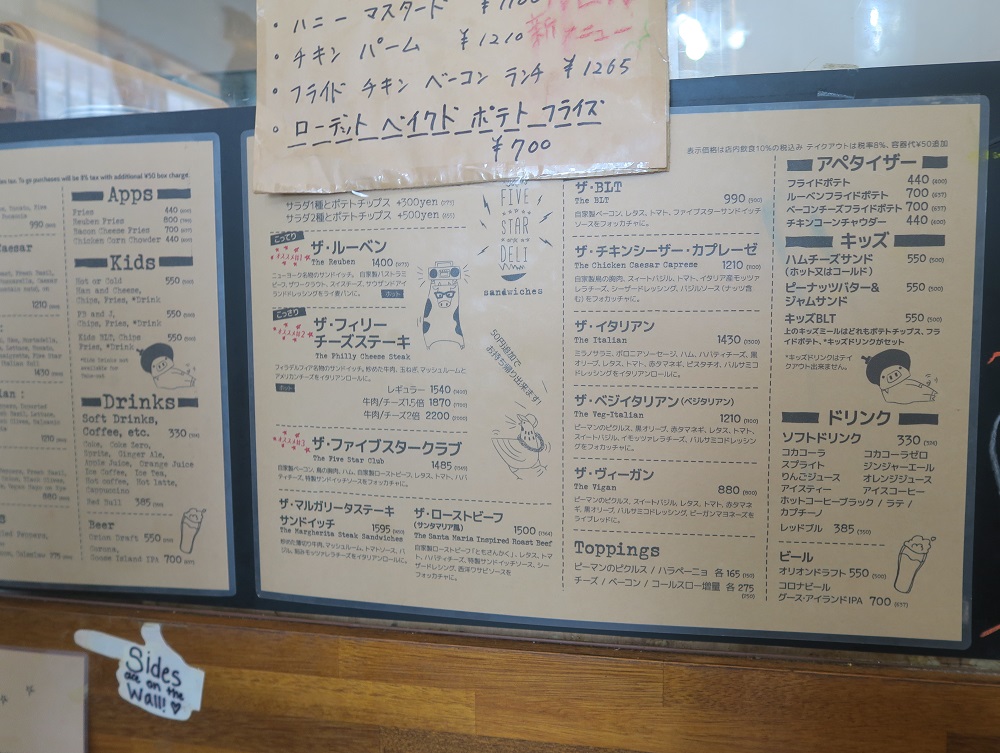 ・ハニー マスタード ¥1100
・チキン パーム ¥1210 新メニュー
・フライド チキン ベーコン ランチ ¥1265
・ローデット ベイクド ポテト フライズ
¥700
To go purchases will be 8% tax with additional ¥50 box charge.
990
1210
1430
1210
880
Apps
Fries 440
Reuben Fries 800
Bacon Cheese Fries 700
Chicken Corn Chowder 440
Kids
Hot or Cold 550
Ham and Cheese,
Chips, Fries, *Drink
PB and J, 550
Chips, Fries, *Drink
Kids BLT, Chips 550
Fries, *Drink
Drinks
Soft Drinks,
Coffee, etc. 330
Coke, Coke Zero,
Sprite, Ginger Ale,
Apple Juice, Orange Juice
Ice Coffee, Ice Tea,
Hot coffee, Hot latte,
Cappuccino
Red Bull 385
Beer
Orion Draft 550
Corona,
Goose Island IPA 700
サラダ1種とポテトチップス +300yen
サラダ2種とポテトチップス +500yen
FIVE
STAR
DELI
sandwiches
こってり
オススメNo.1
ザ・ルーベン
The Reuben 1400
ニューヨーク名物のサンドイッチ。自家製パストラミ
ビーフ、ザワークラウト、スイスチーズ、サウザンドアイ
ランドドレッシングをライ麦パンに。
ホット
こってり
オススメNo.2
ザ・フィリー
チーズステーキ
The Philly Cheese Steak
フィラデルフィア名物のサンドイッチ。炒めた牛肉、玉ねぎ、マッシュルームと
アメリカンチーズをイタリアンロールに。
ホット
レギュラー 1540
牛肉/チーズ1.5倍 1870
牛肉/チーズ2倍 2200
50円追加で
お持ち帰り出来ます!
オススメNo.3
ザ・ファイブスタークラブ
The Five Star Club 1485
自家製ベーコン、鳥の胸肉、ハム、自家製ローストビーフ、レタス、トマト、ハバ
ティチーズ、特製サンドイッチソースをフォッカチャに。
ザ・マルガリータステーキ
サンドイッチ 1595
The Margherita Steak Sandwiches
炒めた薄切り牛肉、マッシュルーム、トマトソース、バ
ジル、刻みモッツァレラチーズをイタリアンロールに。
ザ・ローストビーフ
(サンタマリア風) 1500
The Santa Maria Inspired Roast Beef
自家製ローストビーフ「ともさんかく」、レタス、トマ
ト、ハバティチーズ、特製サンドイッチソース、シー
ザードレッシング、西洋わさびソースを
フォッカチャに。
ザ・BLT
The BLT 990 (900)
自家製ベーコン、レタス、トマト、ファイブスターサンドイッチ
ソースをフォッカチャに。
ザ・チキンシーザー・カプレーゼ
The Chicken Caesar Caprese 1210 (1100)
自家製鳥の胸肉、スイートバジル、トマト、イタリア産モッツァ
レラチーズ、シーザードレッシング、バジルソース(ナッツ含
む)をフォカッチャに。
ザ・イタリアン
The Italian 1430 (1300)
ミラノサラミ、ボロニアソーセージ、ハム、ハバティチーズ、黒
オリーブ、レタス、トマト、赤タマネギ、ピスタチオ、バルサミコ
ドレッシングをイタリアンロールに。
ザ・ベジイタリアン(ベジタリアン)
The Veg-Italian 1210 (1100)
ピーマンのピクルス、黒オリーブ、赤タマネギ、レタス、トマト、
スイートバジル、モッツァレラチーズ、バルサミコドレッシン
グをフォッカチャに。
ザ・ヴィーガン
The Vigan 880 (800)
ピーマンのピクルス、スイートバジル、レタス、トマト、赤タマネ
ギ、黒オリーブ、バルサミコドレッシング、ビーガンマヨネーズを
ライブレッドに。
Toppings
ピーマンのピクルス / ハラペーニョ 各165 (150)
チーズ / ベーコン / コールスロー増量 各275
(250)
表示価格は店内飲食10%の税込み テイクアウトは税率8%、容器代¥50追加
アペタイザー
フライドポテト 440 (400)
ルーベンフライドポテト 700 (637)
ベーコンチーズフライドポテト 700 (637)
チキンコーンチャウダー 440 (400)
キッズ
ハムチーズサンド 550 (500)
(ホット又はコールド)
ピーナッツバター& 550 (500)
ジャムサンド
キッズBLT 550 (500)
上のキッズミールはどれもポテトチップス、フラ
イドポテト、*キッズドリンクがセット
*キッズドリンクはテイ
クアウト出来ません。
ドリンク
ソフトドリンク 330
コカコーラ コカコーラゼロ
スプライト ジンジャーエール
りんごジュース オレンジジュース
アイスティー アイスコーヒー
ホットコーヒーブラック / ラテ /
カプチーノ
レッドブル 385 (350)
ビール
オリオンドラフト 550 (500)
コロナビール
グース・アイランドIPA 700 (637)
Sides
are on the
Wall! ♡